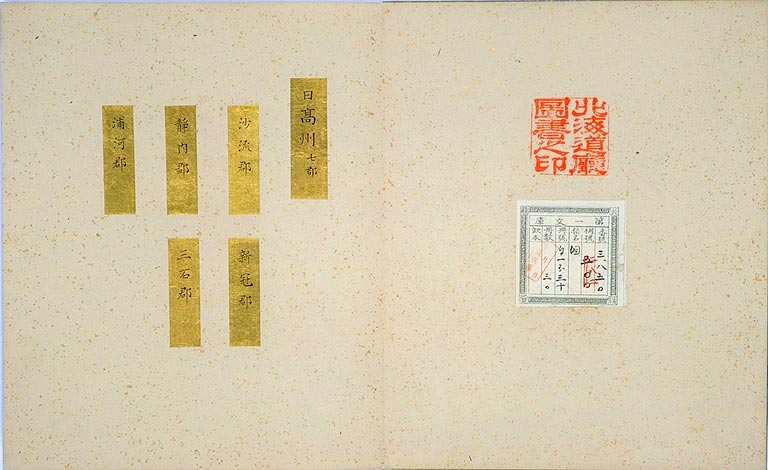 北海道廳
圖書之印
第一文庫
三、八五〇
三〇
日高州七郡
沙流郡
新冠郡
静内郡
三石郡
浦河郡